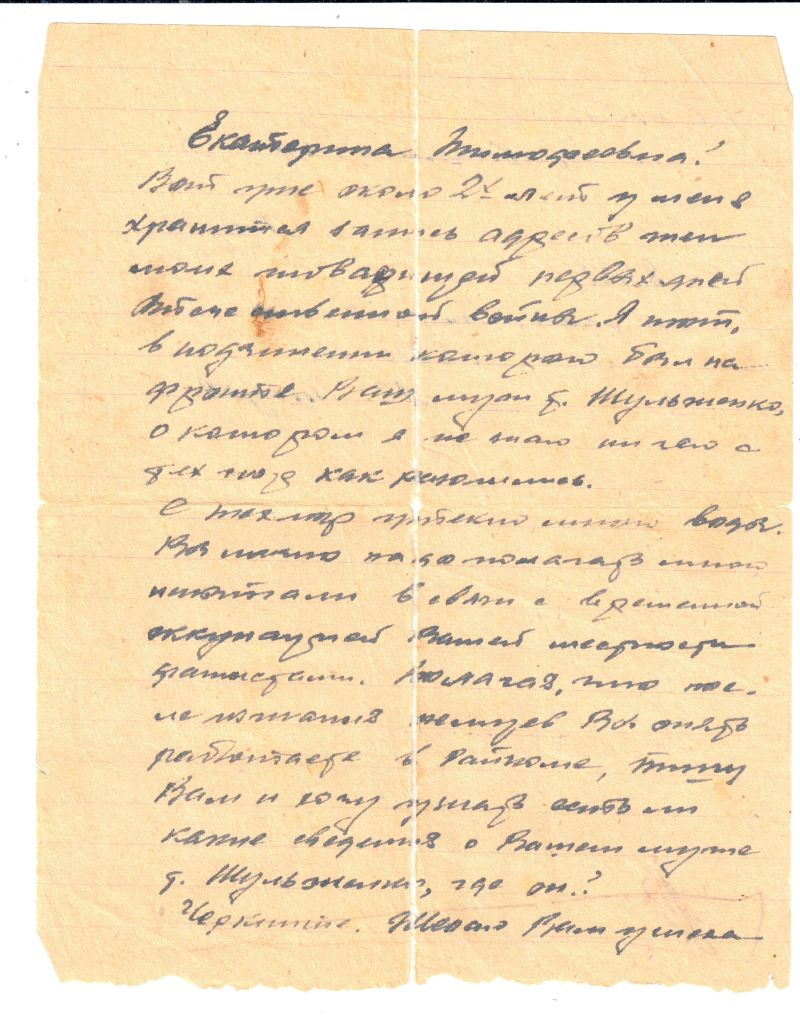 Екатерина Тимофеевна!
Вот уже около 2х лет у меня
хранится запись адресов жен
моих товарищей первых дней
Отечественной войны. Я тот,
в подчинении которого был на
фронте Ваш муж т. Шульженко,
о котором я не знаю ничего с
тех пор как
С тех пор утекло много воды.
Вы лично надо полагать много
испытали в связи с временной
оккупацией Вашей местности
фашистами. Полагая, что пос-
ле изгнания немцев Вы опять
работаете в Райкоме, пишу
Вам и хочу узнать есть ли
какие сведения о Вашем муже
т. Шульженко, где он?
Черкните. Желаю Вам успеха